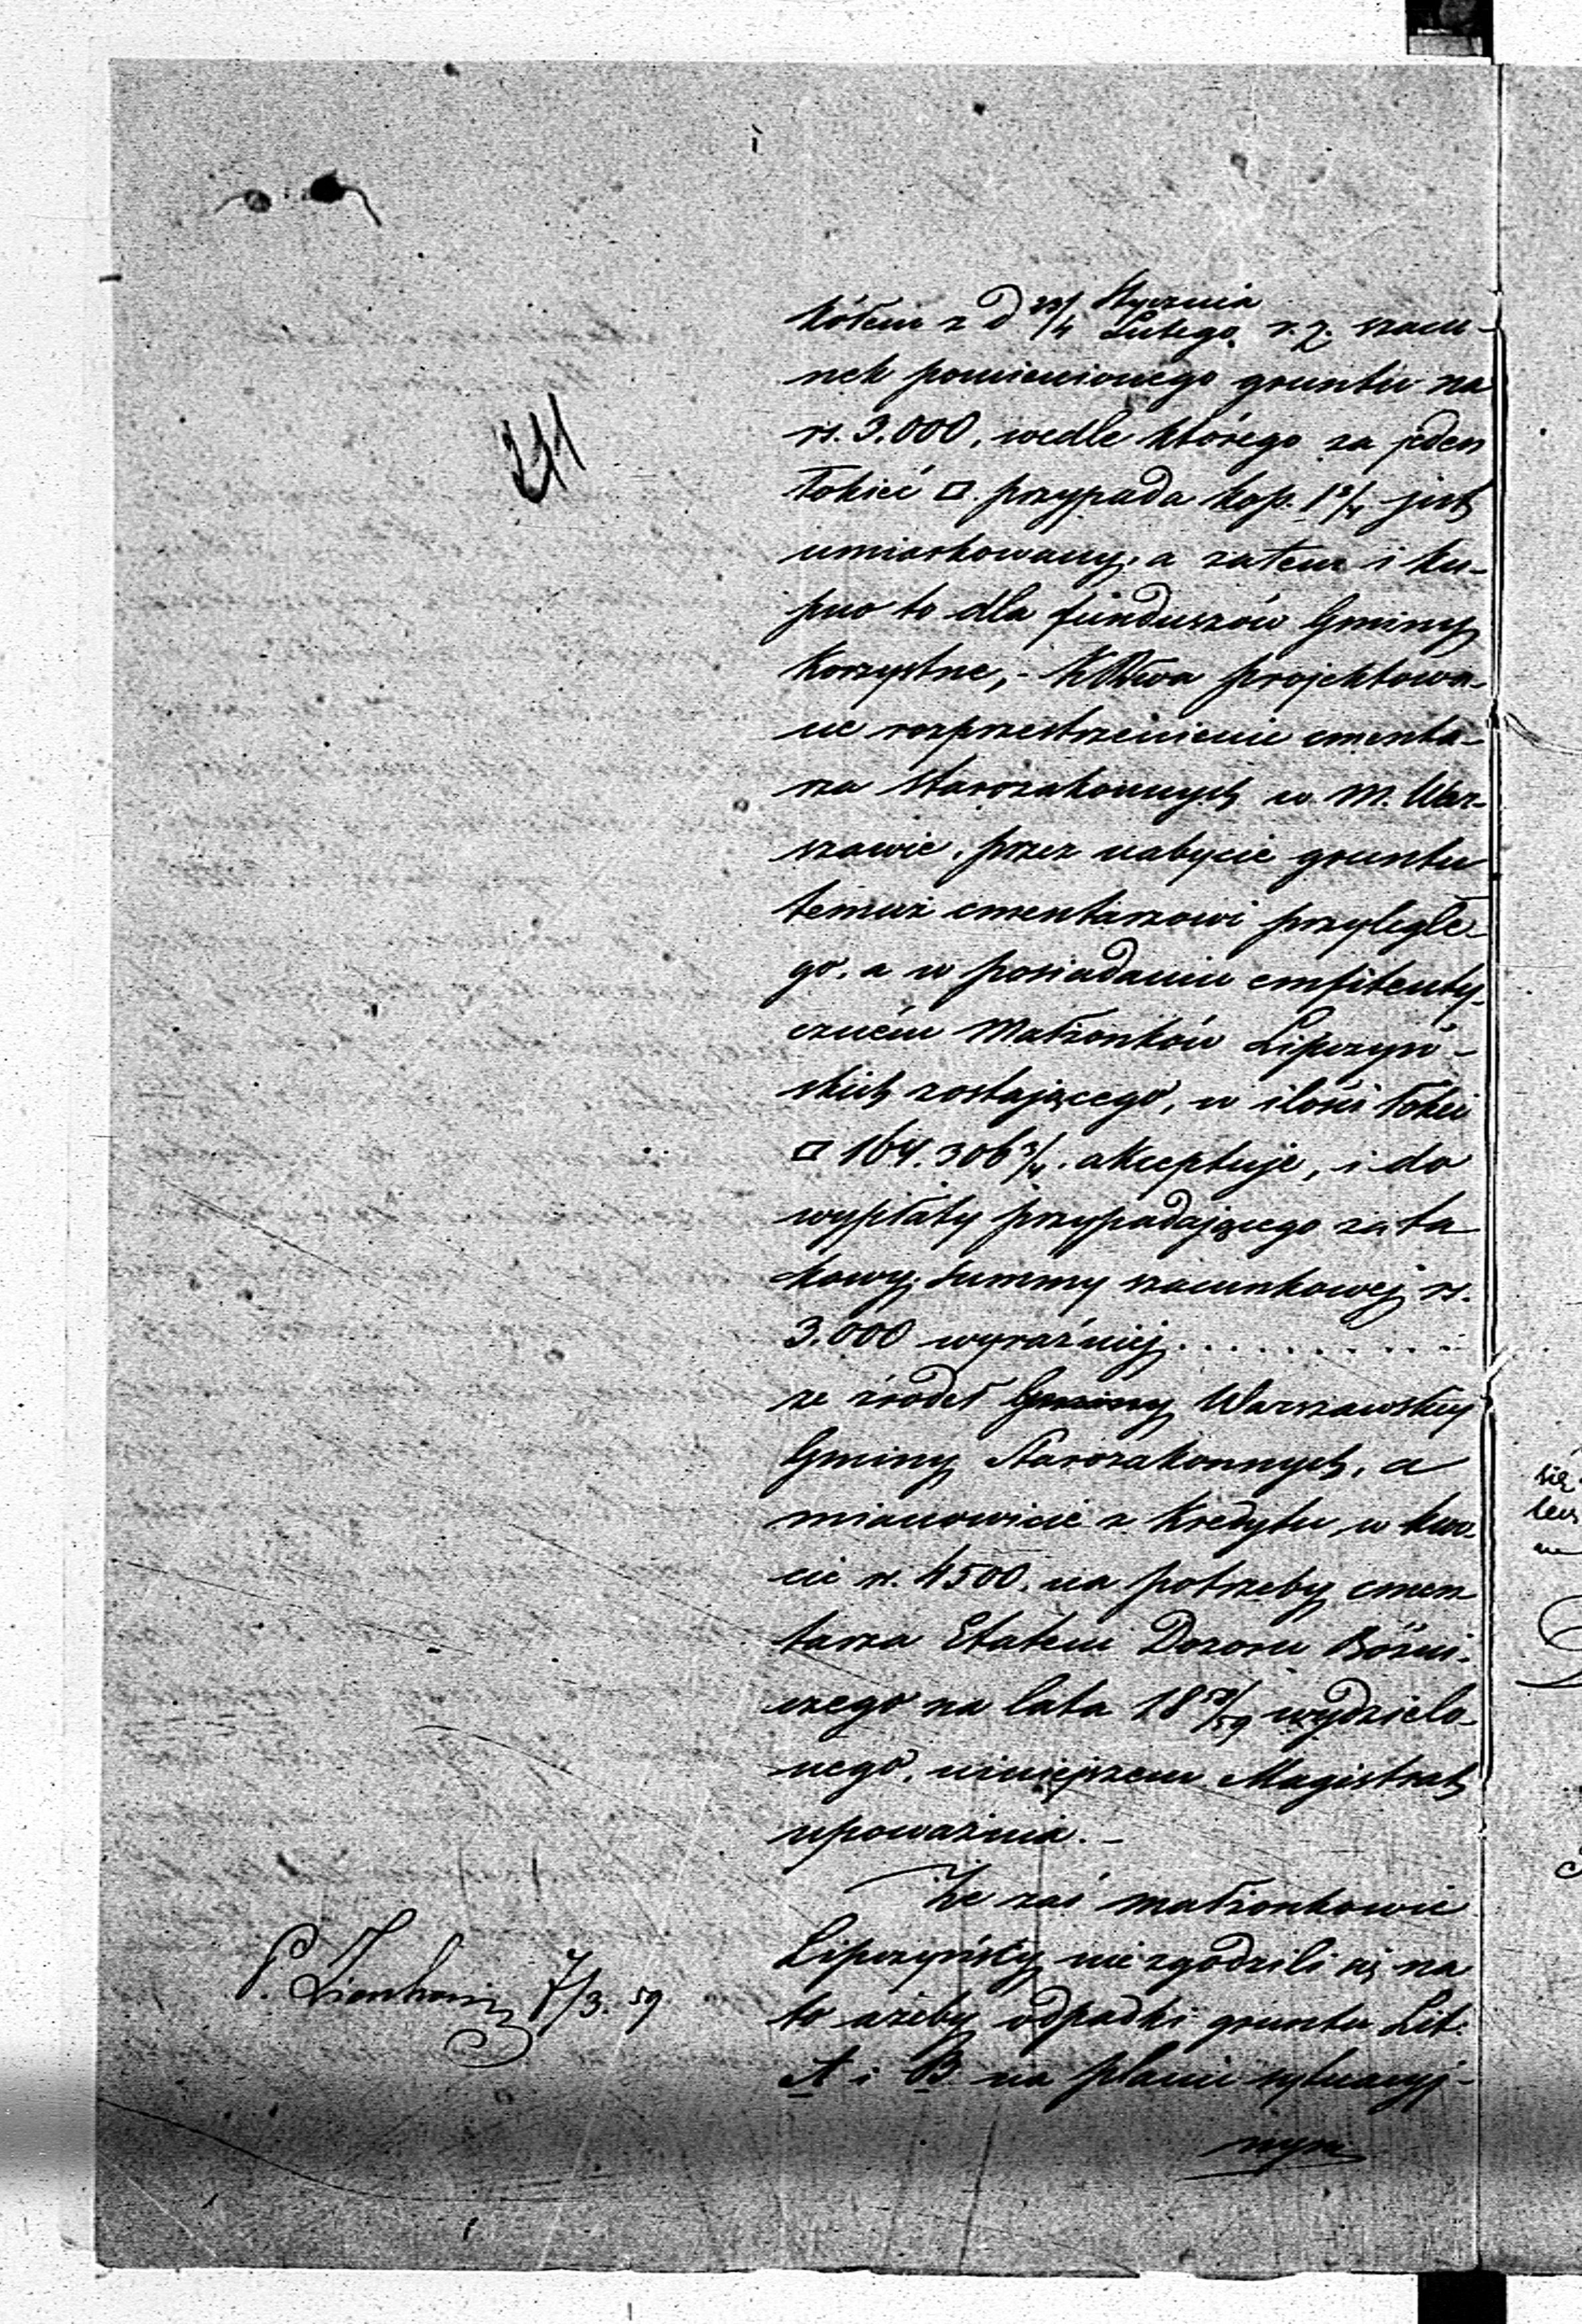 kółem z d 23/4 Stycznia Lutego r. z. szacu-
nek pomienionego gruntu na
rs. 3.000, wedle którego za jeden
łokieć □. przypada kop. 1 3/4 jest
umiarkowany, a zatem i ku-
pno to dla funduszów Gminy
korzystne, - projektowa-
ne rozprzestrzenienie cmenta-
rza Starozakonnych w M. War-
szawie, przez nabycie gruntu
temuż cmentarzowi przyległe-
go, a w posiadaniu emfiteuty-
cznem Małżonków Lipczyń-
skich zostającego, w ilości łokci
□ 164.306 3/4. akceptuje, i do
wypłaty przypadającego za ta
kowy, Summy szacunkowej rs.
3.000 wyraźniej . . . . . . . . . .
ze źródeł Gminy Warszawskiej
Gminy Starozakonnych, a
mianowicie z kredytu w kwo-
cie rs. 4500. na potrzeby cmen-
tarza Etatem Dozoru Bóżni-
czego na lata 18 58/59 wydzielo-
nego, niniejszem Magistrat
upoważnia. -
Że zaś małżonkowie
Lipczyńscy nie zgodzili się na
to ażeby odpadki gruntu Lit.
A i B na planie sytuacyj-
nym
P. 7/3. 59